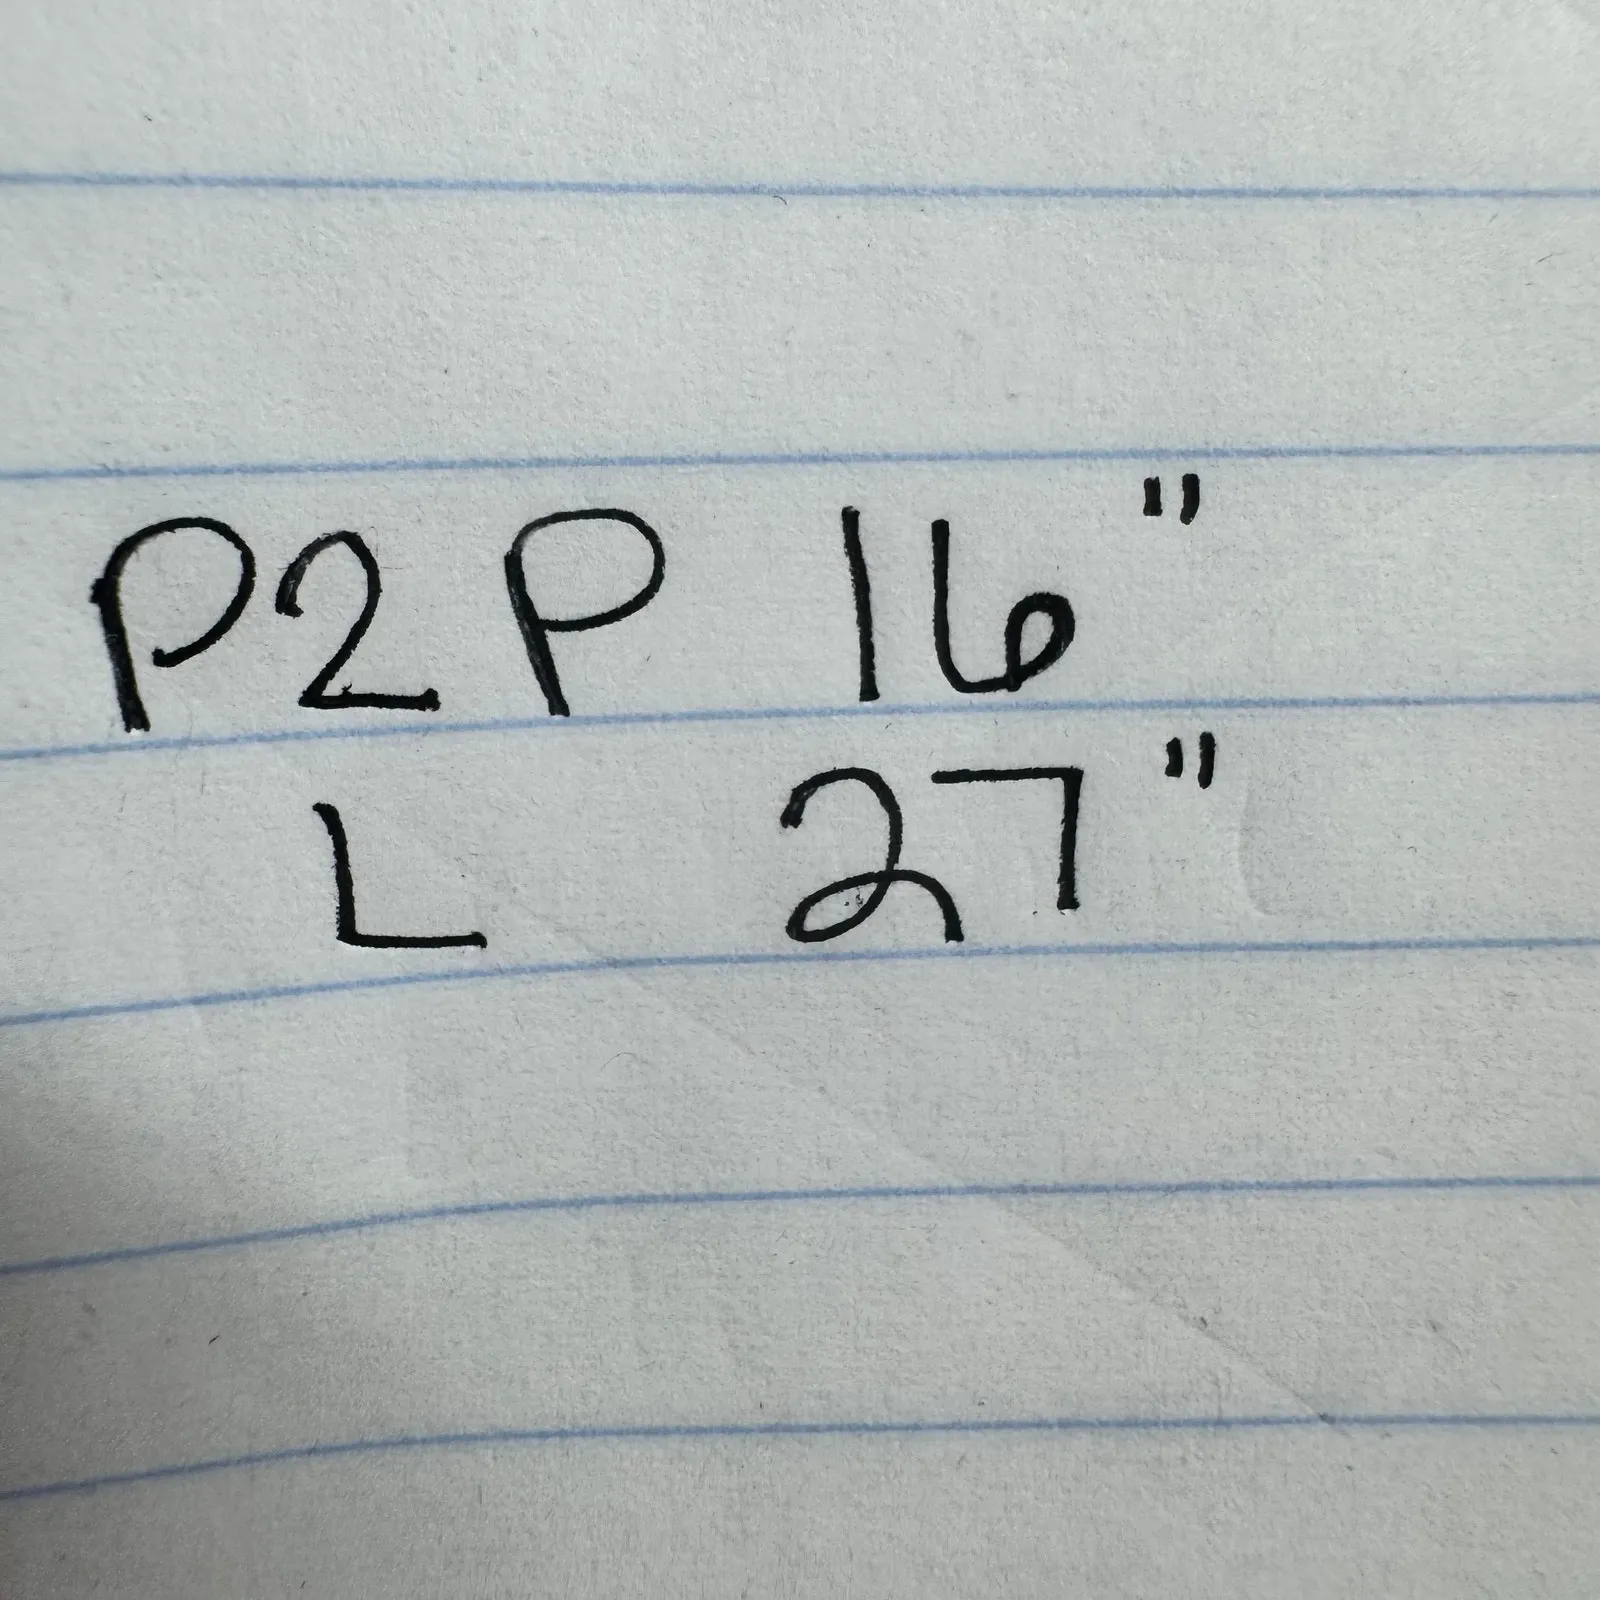 P2P 16"
L 27"